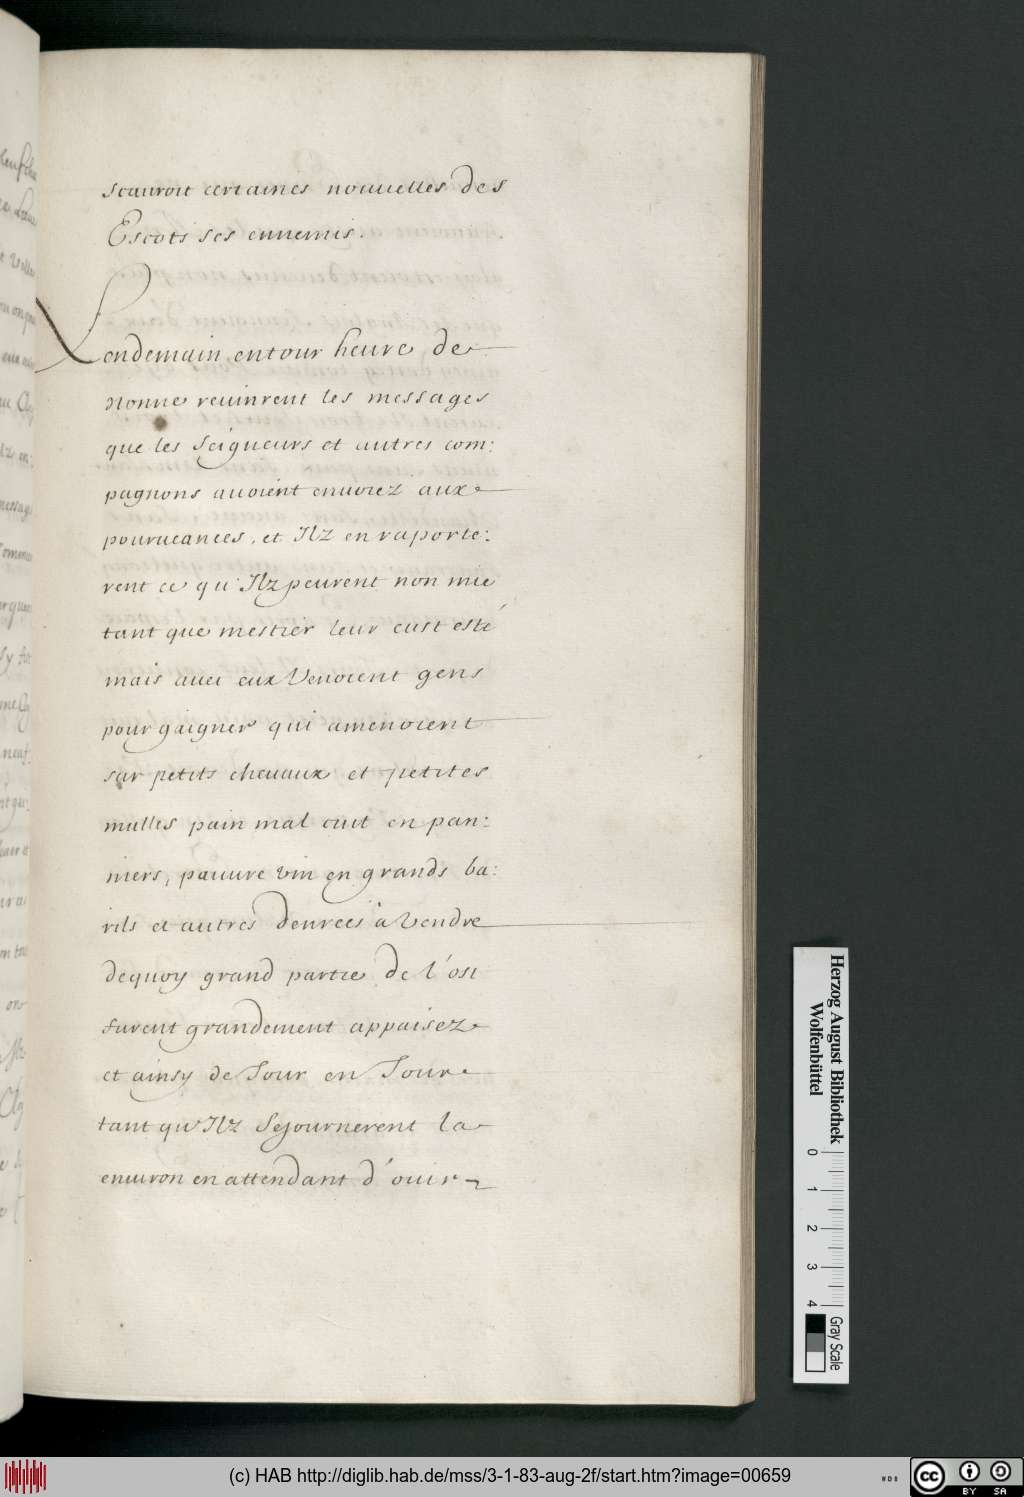 scauroit certaines nouuelles des
Escots ses ennemis.
Lendemain entour heure de
Nonne reuinrent les messages
que les Seigneurs et autres com:
pagnons auoient enuoiez aux
pourueances, et Ilz en raporte:
rent ce qu'Ilz peurent non mie
tant que mestier leur eust esté
mais auec eux Venoient gens
pour gaigner qui amenoient
sur petits cheuaux et petites
mulles pain mal cuit en pan:
niers, pauure vin en grands ba:
rils et autres denrees à Vendre
dequoy grand partie de l'ost
furent grandement appaisez
et ainsy de Jour en Jour
tant qu'Ilz Sejournerent la
enuiron en attendant d'ouir
Herzog August Bibliothek
Wolfenbüttel
0 1 2 3 4
Gray Scale
(c) HAB http://diglib.hab.de/mss/3-1-83-aug-2f/start.htm?image=00659
WDB
cc BY SA